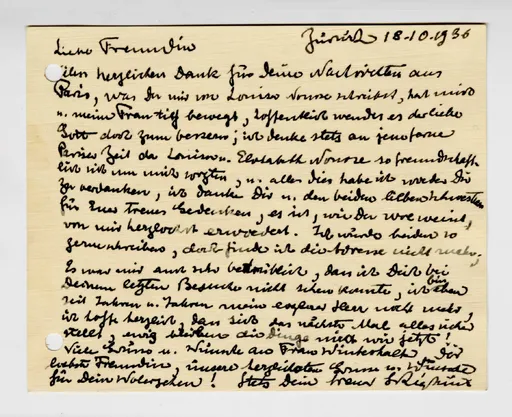 Zürich 18-10-1936
Liebe Freundin
Allen herzlichen Dank für Deine Nachrichten aus
Paris, was Du mir von Louise schreibst, hat mich
u. meine Frau tief bewegt, hoffentlich wendet es der liebe
Gott doch zum bessern; ich denke stets an jene ferne
Pariser Zeit da Louise u. Elisabeth so freundschaft-
lich sich um mich sorgten, u. alles dies habe ich Dir
zu verdanken, ich danke Dir u. den beiden lieben Schwestern
für Eures treues Gedenken, es ist, wie Du weisst,
von mir herzlichst erwidert. Ich würde beiden so
gerne schreiben, doch finde ich die Adresse nicht mehr,
Es war mir auch sehr betrüblich, dass ich Dich bei
Deinem letzten Besuche nicht sehen konnte, ich bin eben
seit Jahren u. Jahren mein Herr nicht mehr,
ich hoffe herzlich, dass sich das nächste Mal alles
stellt, ewig bleiben die Dinge nicht wie jetzt!
Viele Grüsse u. Wünsche an Frau Winterhalter Dir
liebste Freundin, unsere herzlichsten Grüsse u. Wünsche
für Dein Wolergehen! Stets Dein treuer